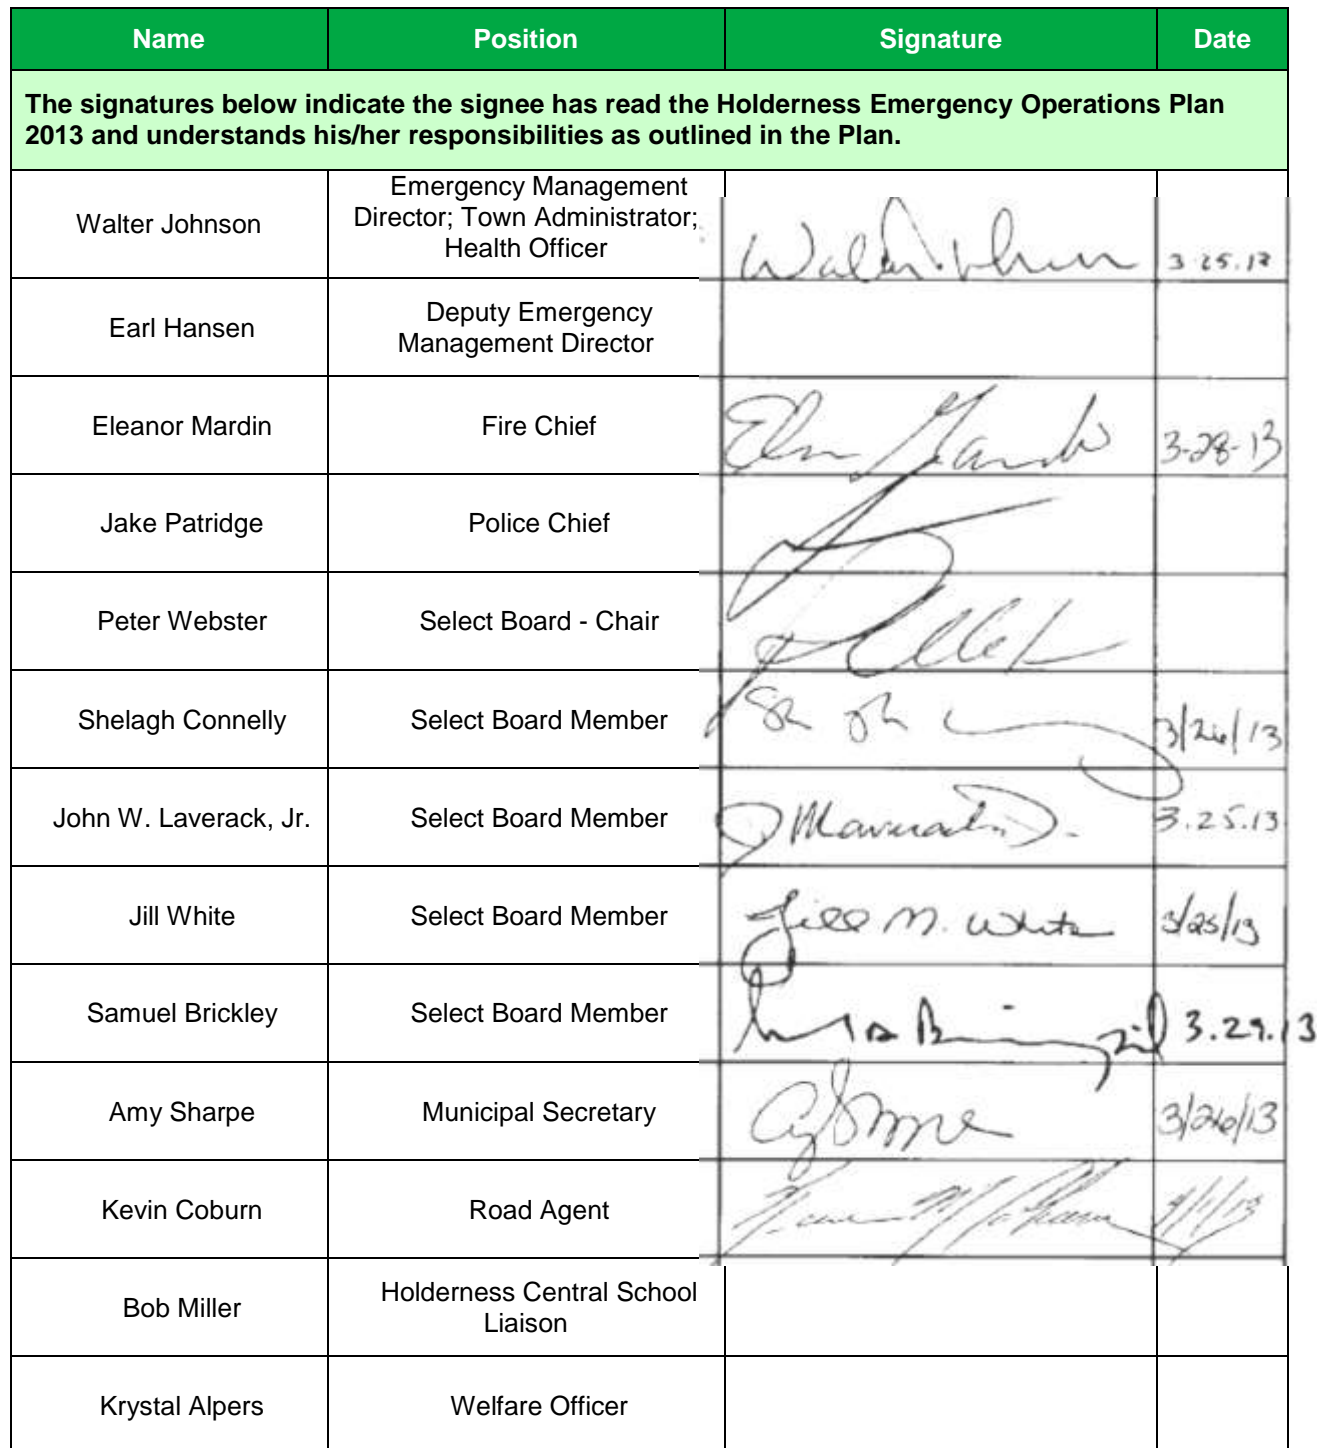 Name Position Signature Date
The signatures below indicate the signee has read the Holderness Emergency Operations Plan
2013 and understands his/her responsibilities as outlined in the Plan.
Emergency Management
Walter Johnson Director; Town Administrator;
Health Officer
3.25.13
Earl Hansen Deputy Emergency
Management Director
Eleanor Mardin Fire Chief 3-28-13
Jake Patridge Police Chief
Peter Webster Select Board - Chair
Shelagh Connelly Select Board Member 3/26/13
John W. Laverack, Jr. Select Board Member 3.25.13
Jill White Select Board Member Jill M. White 3/25/13
Samuel Brickley Select Board Member 3.29.13
Amy Sharpe Municipal Secretary 3/26/13
Kevin Coburn Road Agent
Bob Miller Holderness Central School
Liaison
Krystal Alpers Welfare Officer